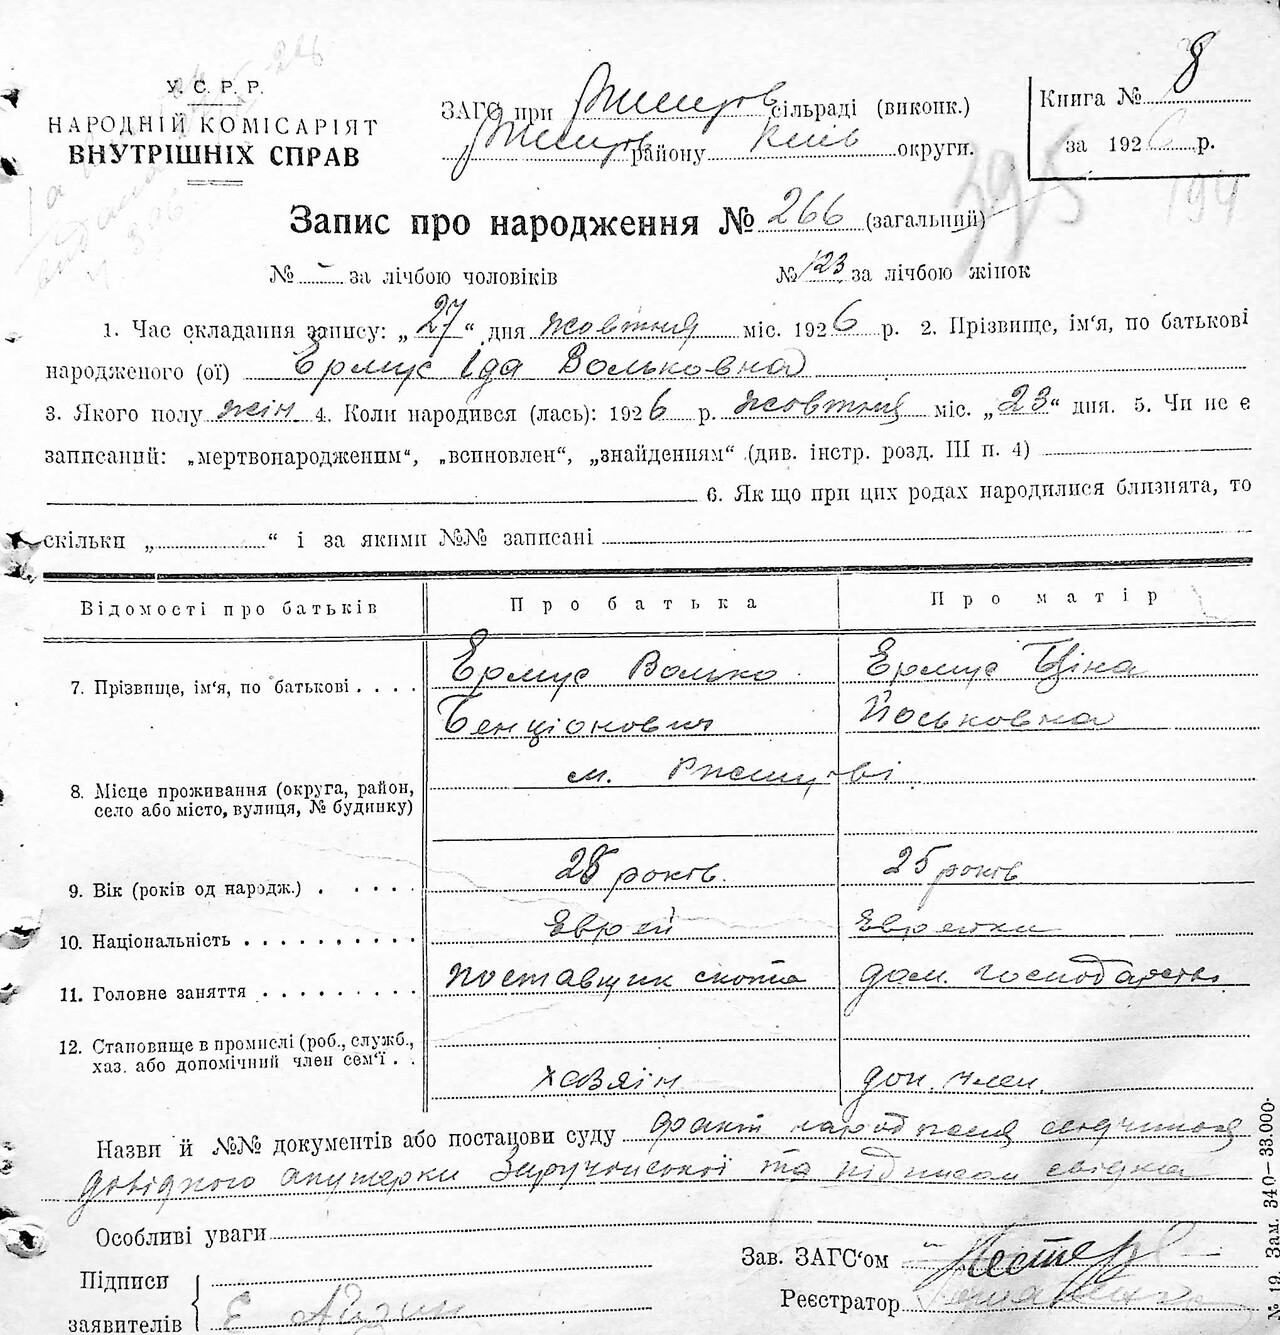 У. С. Р. Р.
НАРОДНІЙ КОМІСАРІЯТ
ВНУТРІШНІХ СПРАВ
ЗАГС при сільраді (виконк.)
району Київ округи.
Книга № 8
за 1926 р.
Запис про народження № 266 (загальний)
395
194
№ - за лічбою чоловіків № 123 за лічбою жінок
1. Час складання запису: „27“ дня жовтня міс. 1926 р. 2. Прізвище, ім'я, по батькові
народженого (ої) Ермус Іда Вольковна
3. Якого полу жін. 4. Коли народився (лась): 1926 р. жовтня міс. „23“ дня. 5. Чи не є
записаний: „мертвонародженим“, „всиновлен“, „знайденням“ (див. інстр. розд. III п. 4)
6. Як що при цих родах народилися близнята, то
скільки „ “ і за якими №№ записані
Відомості про батьків Про батька Про матір
7. Прізвище, ім'я, по батькові . . . . Ермус Волько Ермус Ціна
Бенціонович Йоськовна
8. Місце проживання (округа, район, село або місто, вулиця, № будинку) м. Ржищеві
9. Вік (років од народж.) . . . . . 28 років. 25 років
10. Національність . . . . . . . . . . Еврей Еврейка
11. Головне заняття . . . . . . . . . поставщик скота дом. господарство
12. Становище в промислі (роб., служб., хаз. або допомічний член сем'ї . . хазяін доп. член.
Назви й №№ документів або постанови суду факт народження
довідкою акушерки та підписом свідка
Особливі уваги
Підписи
заявителів Е
Зав. ЗАГС'ом
Реєстратор
№ 19. Зам. 340—33.000.